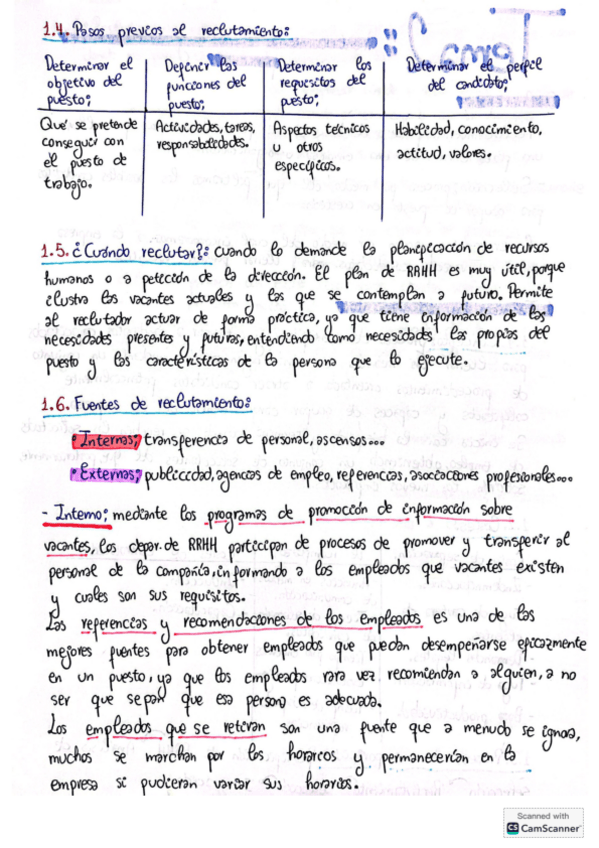 1.4. Pasos previos al reclutamiento:
Determinar el objetivo del puesto;
Definir las funciones del puesto;
Determinar los requisitos del puesto;
Determinar el perfil del candidato;
Qué se pretende conseguir con el puesto de trabajo.
Actividades, tareas, responsabilidades.
Aspectos técnicos u otros específicos.
Habilidad, conocimiento, actitud, valores.
1.5. ¿Cuándo reclutar?: cuando lo demande la planificación de recursos
humanos o a petición de la dirección. El plan de RRHH es muy útil, porque
ilustra las vacantes actuales y las que se contemplan a futuro. Permite
al reclutador actuar de forma práctica, ya que tiene información de las
necesidades presentes y futuras, entendiendo como necesidades las propias del
puesto y las características de la persona que lo ejecute.
1.6. Fuentes de reclutamiento:
• Internas; transferencia de personal, ascensos...
• Externas; publicidad, agencias de empleo, referencias, asociaciones profesionales...
- Interno; mediante los programas de promoción de información sobre
vacantes, los depar. de RRHH participan de procesos de promover y transferir al
personal de la compañía, informando a los empleados que vacantes existen
y cuales son sus requisitos.
Las referencias y recomendaciones de los empleados es una de las
mejores fuentes para obtener empleados que puedan desempeñarse eficazmente
en un puesto, ya que los empleados rara vez recomiendan a alguien, a no
ser que sepan que esa persona es adecuada.
Los empleados que se retiran son una fuente que a menudo se ignora,
muchos se marchan por los horarios y permanecerían en la
empresa si pudieran variar sus horarios.
Scanned with
CS CamScanner